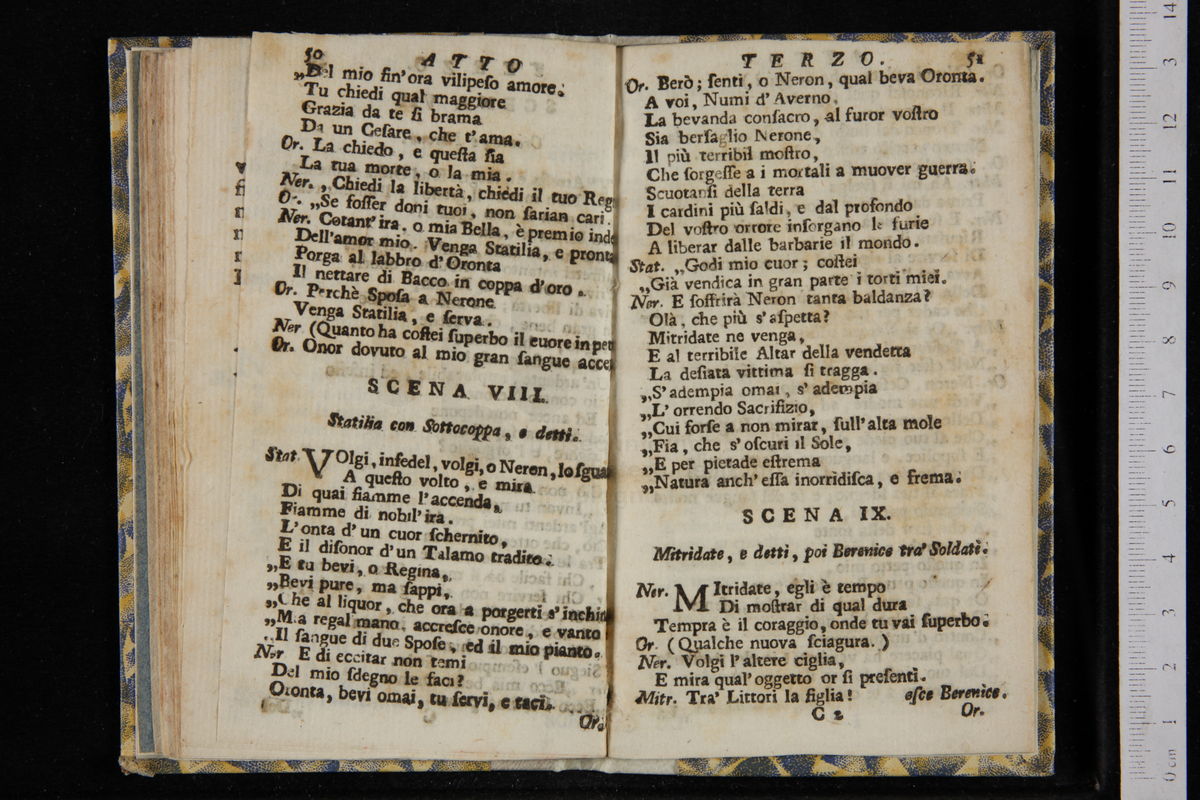 50 ATTO
„Del mio fin'ora vilipeſo amore.
Tu chiedi qual maggiore
Grazia da te ſi brama
Da un Ceſare, che t'ama.
Or. La chiedo, e queſta ſia
La tua morte, o la mia.
Ner. „Chiedi la libertà, chiedi il tuo Reg
Or. „Se foſſer doni tuoi, non ſarian cari.
Ner. Cotant'ira, o mia Bella, è premio inde
Dell'amor mio. Venga Statilia, e pronta
Porga al labbro d'Oronta
Il nettare di Bacco in coppa d'oro.
Or. Perchè Spoſa a Nerone
Venga Statilia, e ſerva.
Ner (Quanto ha coſtei ſuperbo il cuore in pet
Or. Onor dovuto al mio gran ſangue accet
SCENA VIII.
Statilia con Sottocoppa, e detti.
Stat. VOlgi, infedel, volgi, o Neron, lo ſgua
A queſto volto, e mira
Di quai fiamme l'accenda,
Fiamme di nobil'ira.
L'onta d'un cuor ſchernito,
E il diſonor d'un Talamo tradito.
„E tu bevi, o Regina,
„Bevi pure, ma ſappi,
„Che al liquor, che ora a porgerti s'inchin
„Mia regal mano, accreſce onore, e vanto
„Il ſangue di due Spoſe, ed il mio pianto.
Ner E di eccitar non temi
Del mio ſdegno le faci?
Oronta, bevi omai, tu ſervi, e taci.
Or.
TERZO. 51
Or. Berò; ſenti, o Neron, qual beva Oronta.
A voi, Numi d'Averno,
La bevanda conſacro, al furor voſtro
Sia berſaglio Nerone,
Il più terribil moſtro,
Che ſorgeſſe a i mortali a muover guerra.
Scuotanſi della terra
I cardini più ſaldi, e dal profondo
Del voſtro orrore inſorgano le furie
A liberar dalle barbarie il mondo.
Stat. „Godi mio cuor; coſtei
„Già vendica in gran parte i torti miei.
Ner. E ſoffrirà Neron tanta baldanza?
Olà, che più s'aſpetta?
Mitridate ne venga,
E al terribile Altar della vendetta
La deſiata vittima ſi tragga.
„S'adempia omai, s'adempia
„L'orrendo Sacrifizio,
„Cui forſe a non mirar, ſull'alta mole
„Fia, che s'oſcuri il Sole,
„E per pietade eſtrema
„Natura anch'eſſa inorridiſca, e frema.
SCENA IX.
Mitridate, e detti, poi Berenice tra' Soldati.
Ner. MItridate, egli è tempo
Di moſtrar di qual dura
Tempra è il coraggio, onde tu vai ſuperbo.
Or. (Qualche nuova ſciagura.)
Ner. Volgi l'altere ciglia,
E mira qual'oggetto or ſi preſenti.
Mitr. Tra' Littori la figlia! eſce Berenice.
C 2 Or.
0 cm 1 2 3 4 5 6 7 8 9 10 11 12 13 14